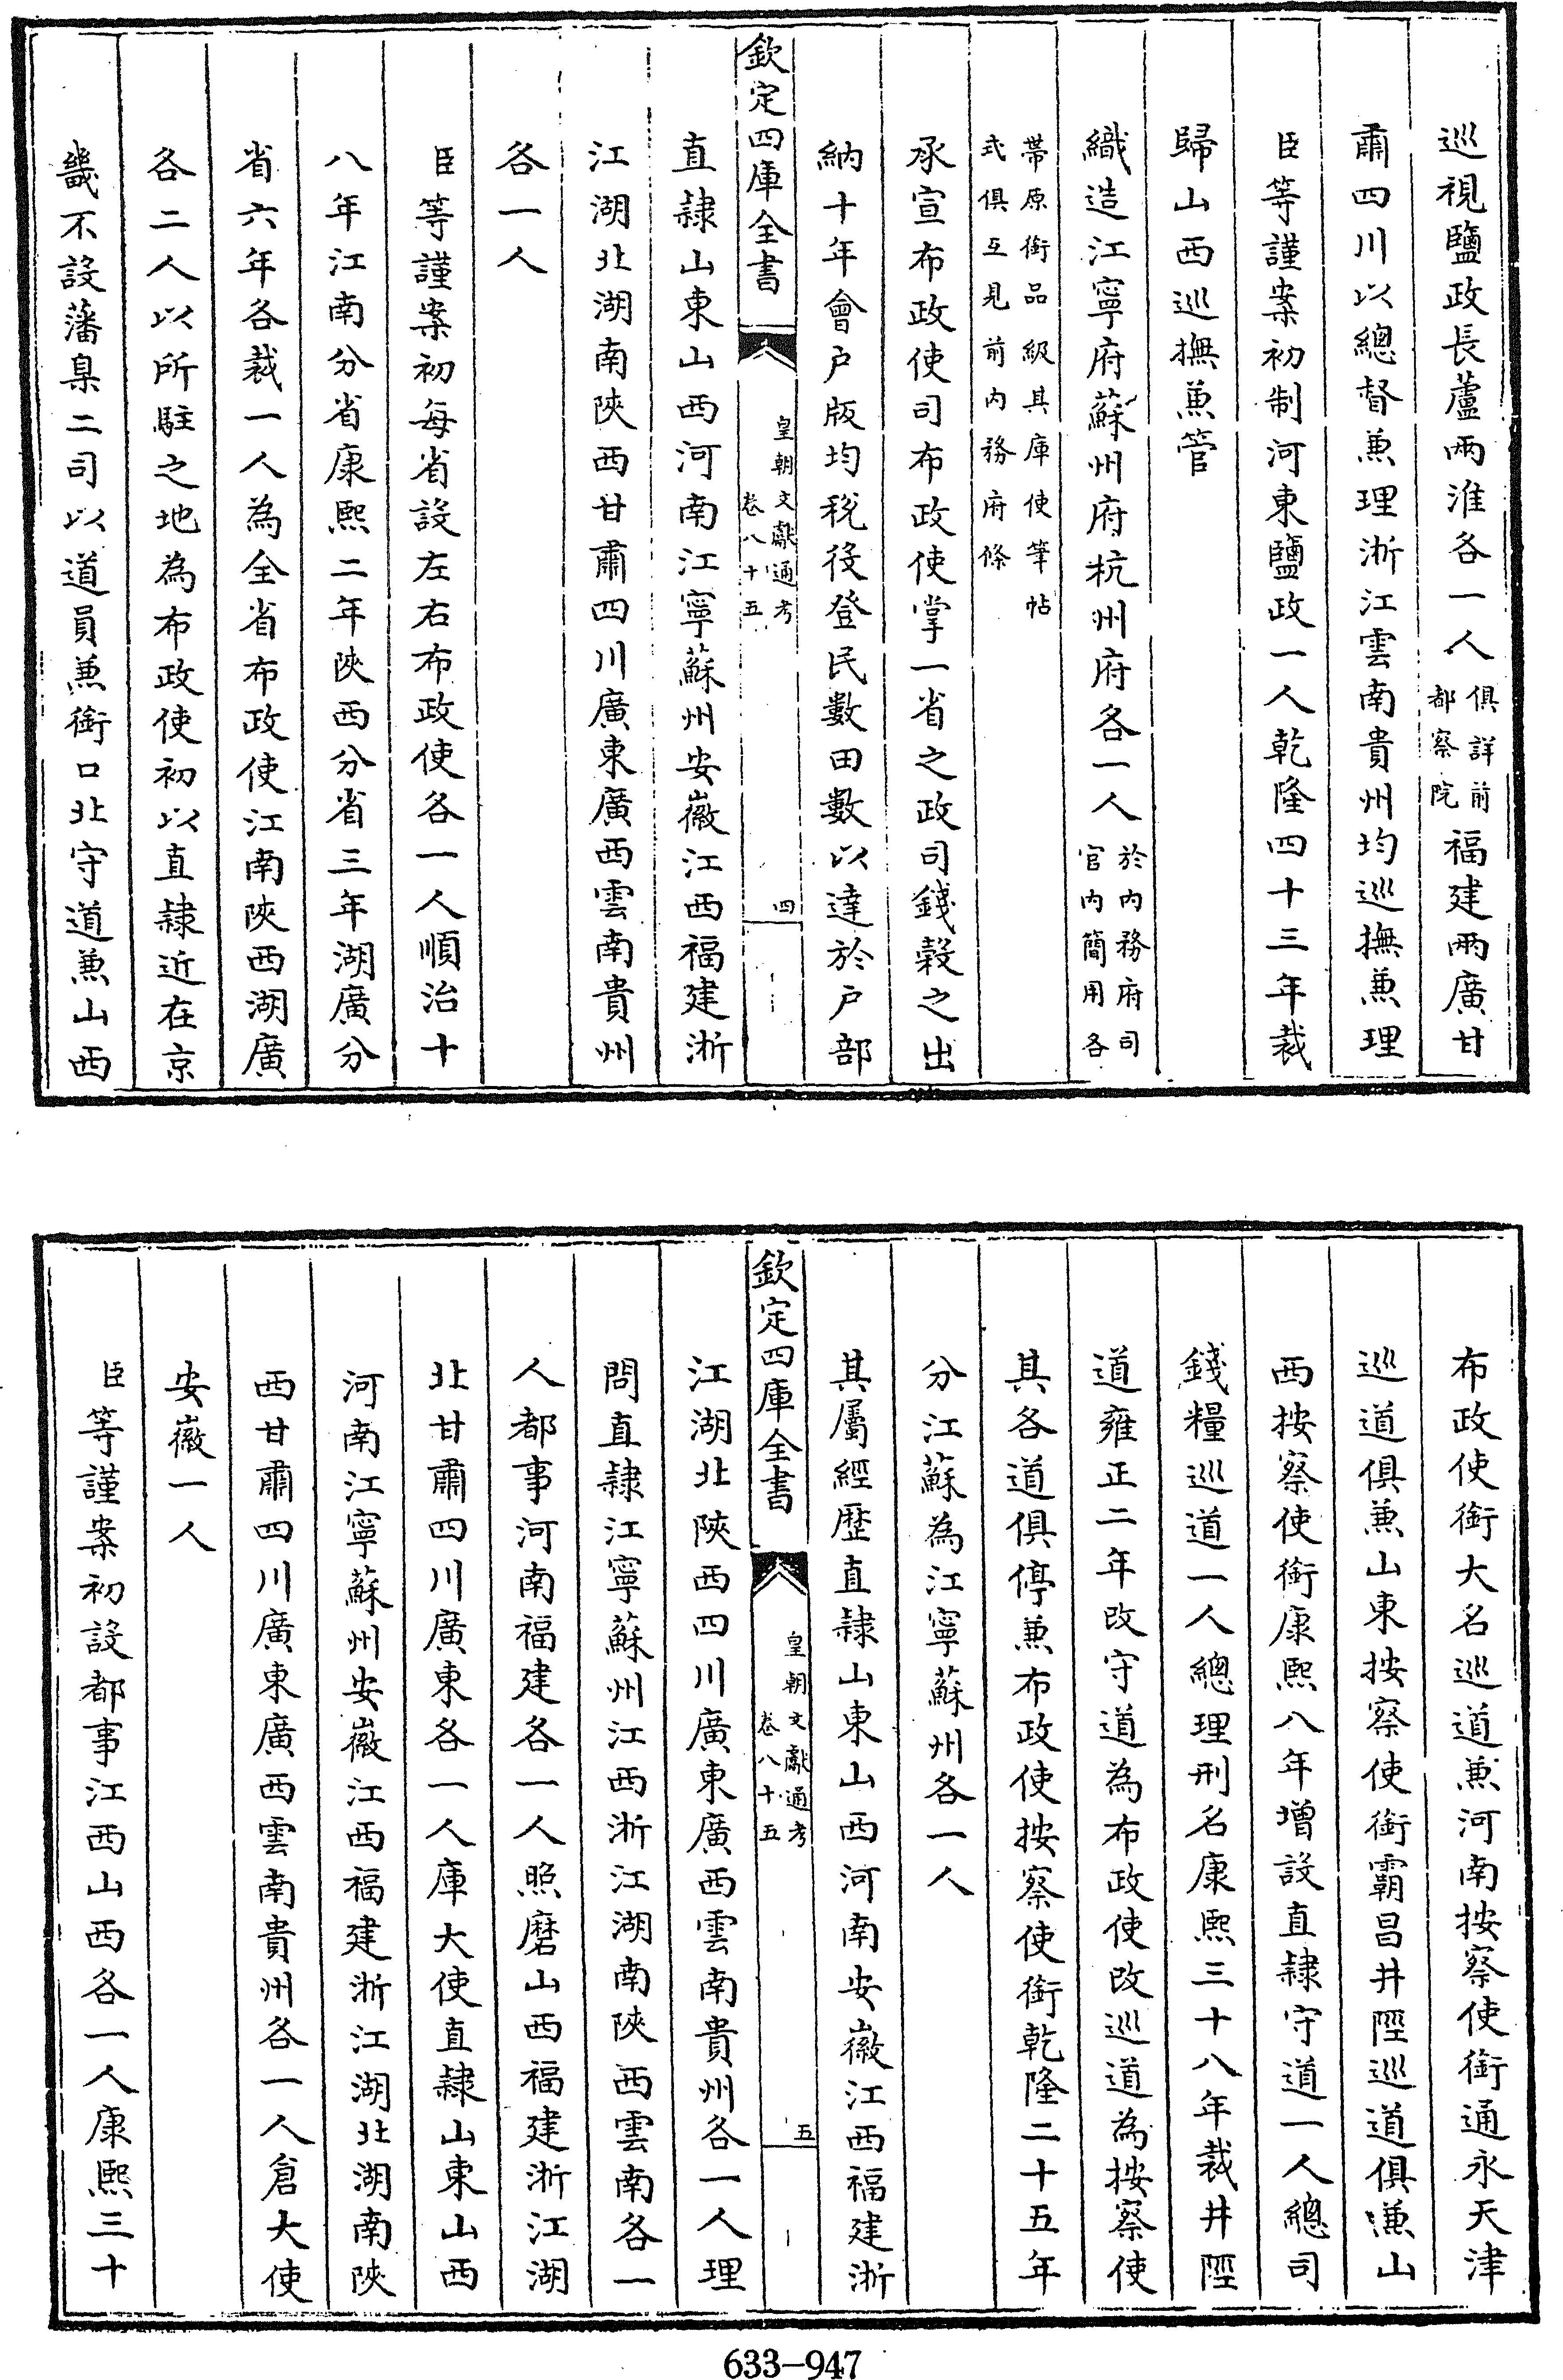 巡視鹽政長蘆兩淮各一人俱詳前都察院福建兩廣甘
肅四川以總督兼理浙江雲南貴州均巡撫兼理
臣等謹案初制河東鹽政一人乾隆四十三年裁
歸山西巡撫兼管
織造江寧府蘇州府杭州府各一人於內務府司官內簡用各
帶原銜品級其庫使筆帖式俱互見前內務府條
承宣布政使司布政使掌一省之政司錢榖之出
納十年會户版均稅役登民數田數以達於户部
欽定四庫全書
皇朝文獻通考
卷八十五
四
直隸山東山西河南江寧蘇州安徽江西福建浙
江湖北湖南陝西甘肅四川廣東廣西雲南貴州
各一人
臣等謹案初每省設左右布政使各一人順治十
八年江南分省康熙二年陝西分省三年湖廣分
省六年各裁一人為全省布政使江南陝西湖廣
各二人以所駐之地為布政使初以直隸近在京
畿不設藩臬二司以道員兼銜口北守道兼山西
布政使銜大名巡道兼河南按察使銜通永天津
巡道俱兼山東按察使銜霸昌井陘巡道俱兼山
西按察使銜康熙八年增設直隸守道一人總司
錢糧巡道一人總理刑名康熙三十八年裁井陘
道雍正二年改守道為布政使改巡道為按察使
其各道俱停兼布政使按察使銜乾隆二十五年
分江蘇為江寧蘇州各一人
其屬經歷直隸山東山西河南安徽江西福建浙
欽定四庫全書
皇朝文獻通考
卷八十五
五
江湖北陝西四川廣東廣西雲南貴州各一人理
問直隸江寧蘇州江西浙江湖南陝西雲南各一
人都事河南福建各一人照磨山西福建浙江湖
北甘肅四川廣東各一人庫大使直隸山東山西
河南江寧蘇州安徽江西福建浙江湖北湖南陝
西甘肅四川廣東廣西雲南貴州各一人倉大使
安徽一人
臣等謹案初設都事江西山西各一人康熙三十
633-947